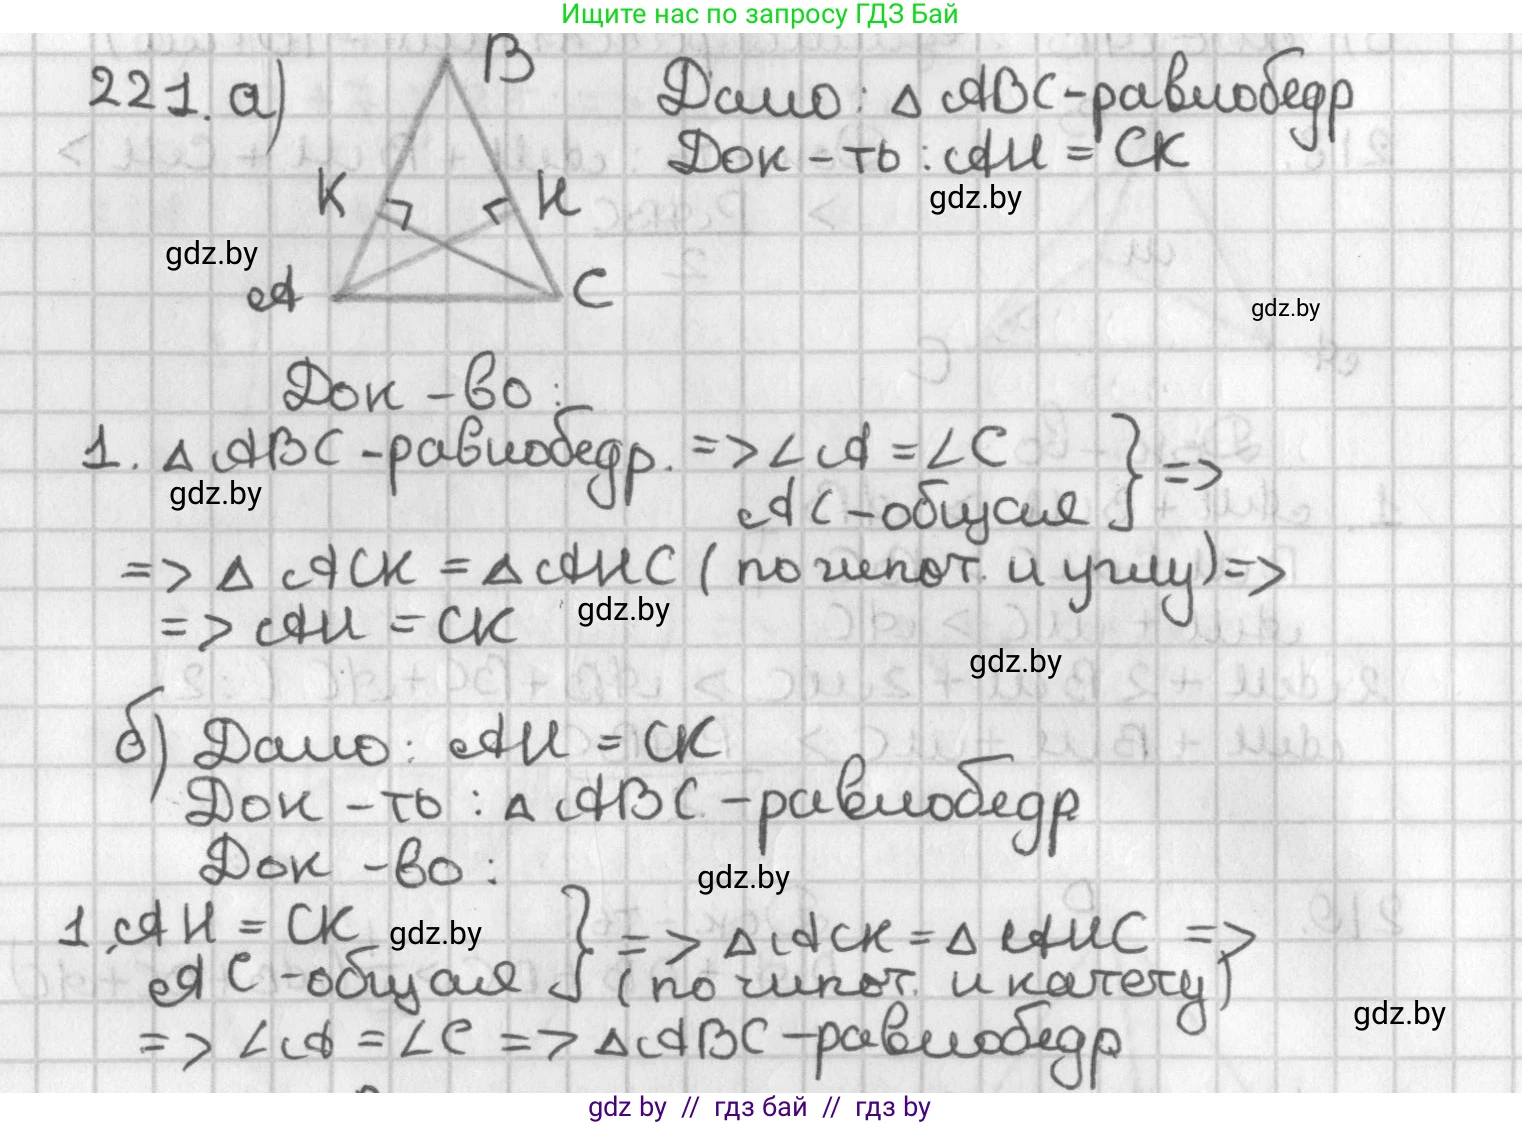 Ищите нас по запросу ГДЗ Бай
221. а)
B
K
H
A
C
Дано: △ ABC - равнобедр
Док - ть : AH = CK
gdz.by
gdz.by
gdz.by
Док - во :
1. △ ABC - равнобедр. => ∠A = ∠C
AC - общая } =>
gdz.by
=> △ ACK = △ AHC ( по гипот. и углу) =>
=> AH = CK
gdz.by
gdz.by
б) Дано: AH = CK
Док - ть : △ ABC - равнобедр
Док - во :
gdz.by
1. AH = CK
AC - общая } => △ ACK = △ AHC =>
(по гипот. и катету)
gdz.by
gdz.by
=> ∠A = ∠C => △ ABC - равнобедр
gdz by // гдз бай // гдз by